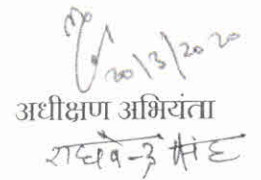 20/3/2020
अधीक्षण अभियंता
राघवेन्द्र सिंह